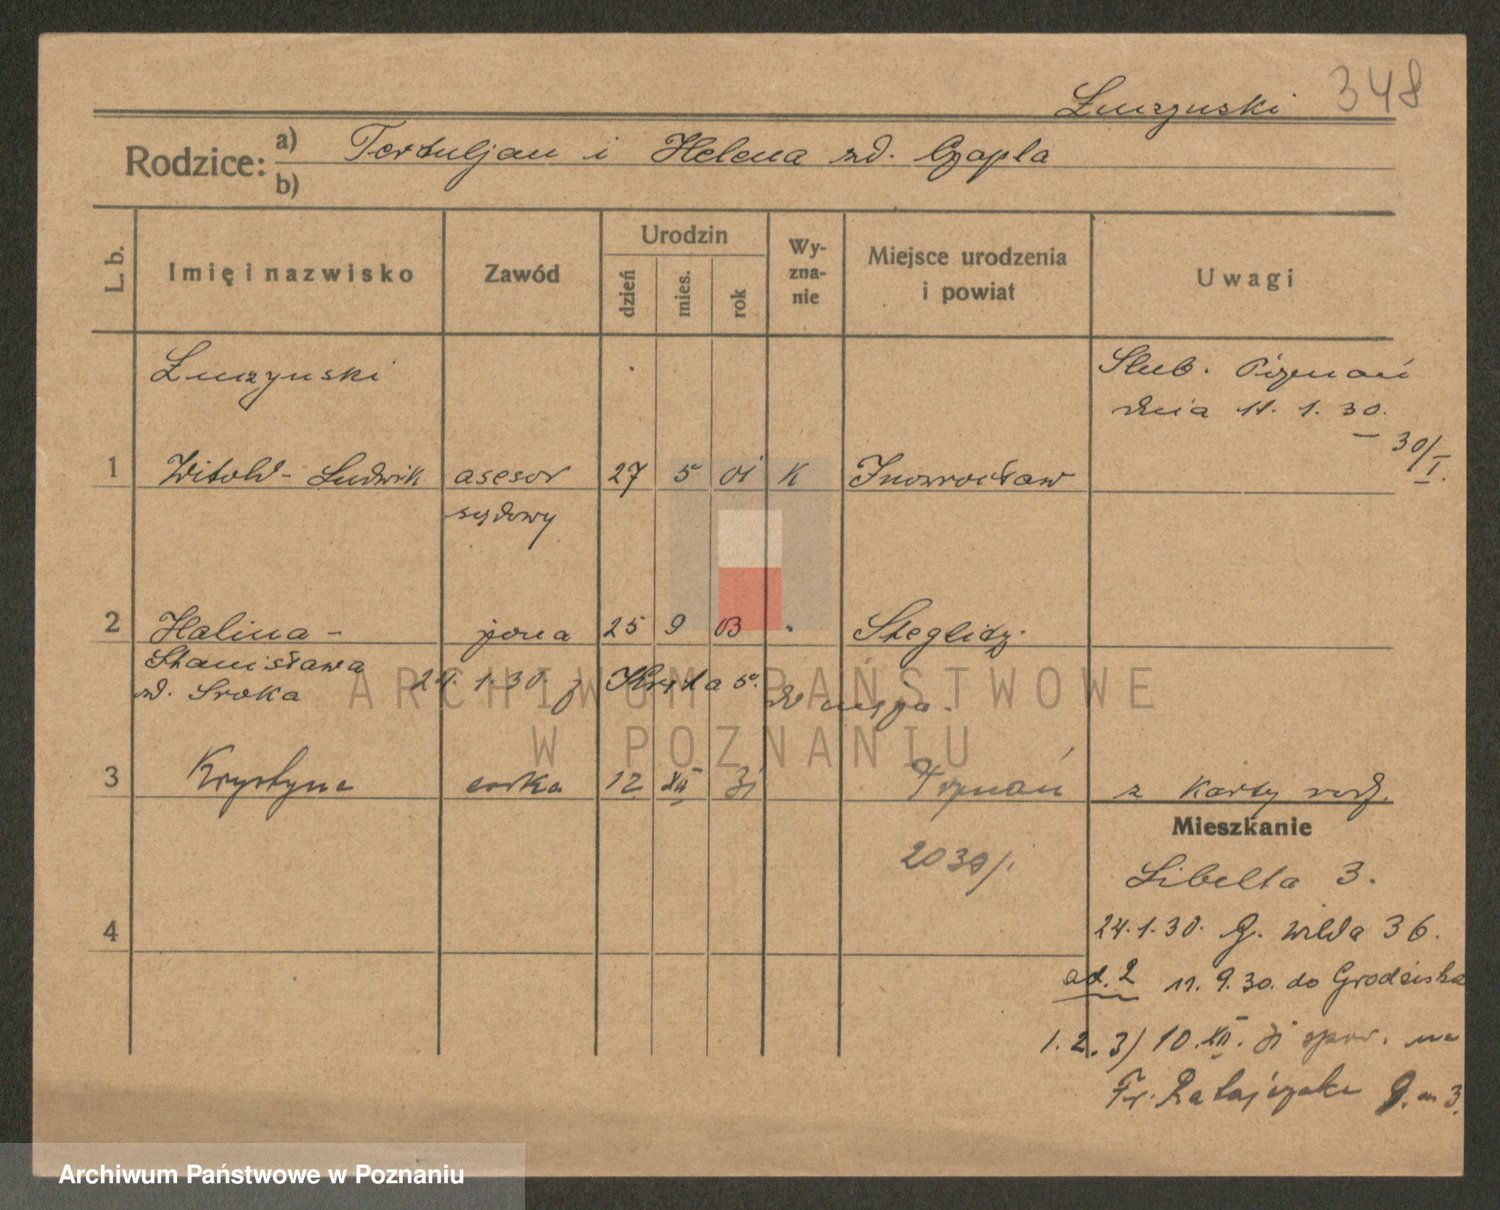 348
Żuczynski
Rodzice: a) Tertuljan i Helena zd. Czapla
b)
L. b. Imię i nazwisko Zawód Urodzin dzień mies. rok Wyznanie Miejsce urodzenia i powiat Uwagi
Żuczynski
Ślub. Poznań
dnia 11. 1. 30.
30/I.
1 Witold - Ludwik asesor 27 5 01 K Inowrocław
sądowy
2 Halina - żona 25 9 03 " Steglitz.
Stanisława
zd. Sroka 24. 1. 30. z
3 Krystyna corka 12 XII 31 Poznań z Karty rodz.
Mieszkanie
2039/.
Libelta 3.
4
24. 1. 30. G. Wilda 36.
ad. 2 11. 9. 30. do Grodziska
1. 2. 3) 10. XII. 31 spow. na
Fr. Ratajczaka 9. m 3.
ARCHIWUM PAŃSTWOWE
W POZNANIU
Archiwum Państwowe w Poznaniu